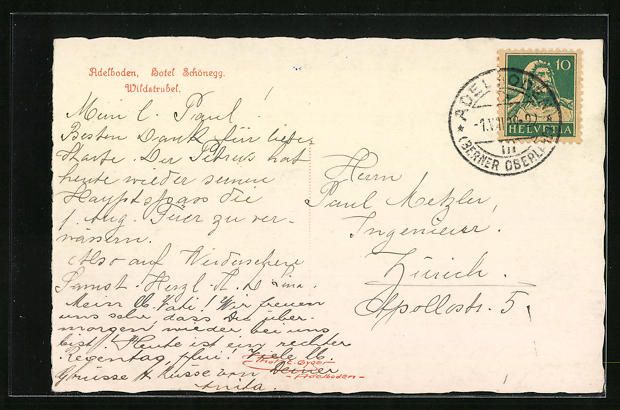 Adelboden, Hotel Schönegg.
Wildstrubel.
10
HELVETIA
ADELBODEN
(BERNER OBERLD.)
Mein l. Paul!
Besten Dank für liebe
Karte. Der Petrus hat
heute wieder seinen
Hauptspass die
1. Aug. Füer zu ver-
wässern.
Also auf Wiedersehen
Samst. Herzl. K. D.
Mein lb. Vati! Wir freuen
uns sehr dass Du über-
morgen wieder bei uns
bist! Heute ist ein rechter
Regentag, flui! Viele lb.
Grüsse & Küsse von Deiner
Anita.
Herrn
Paul Metzler,
Ingenieur.
Zürich.
Apollostr. 5.
Phot. E. Gyger
- Adelboden -